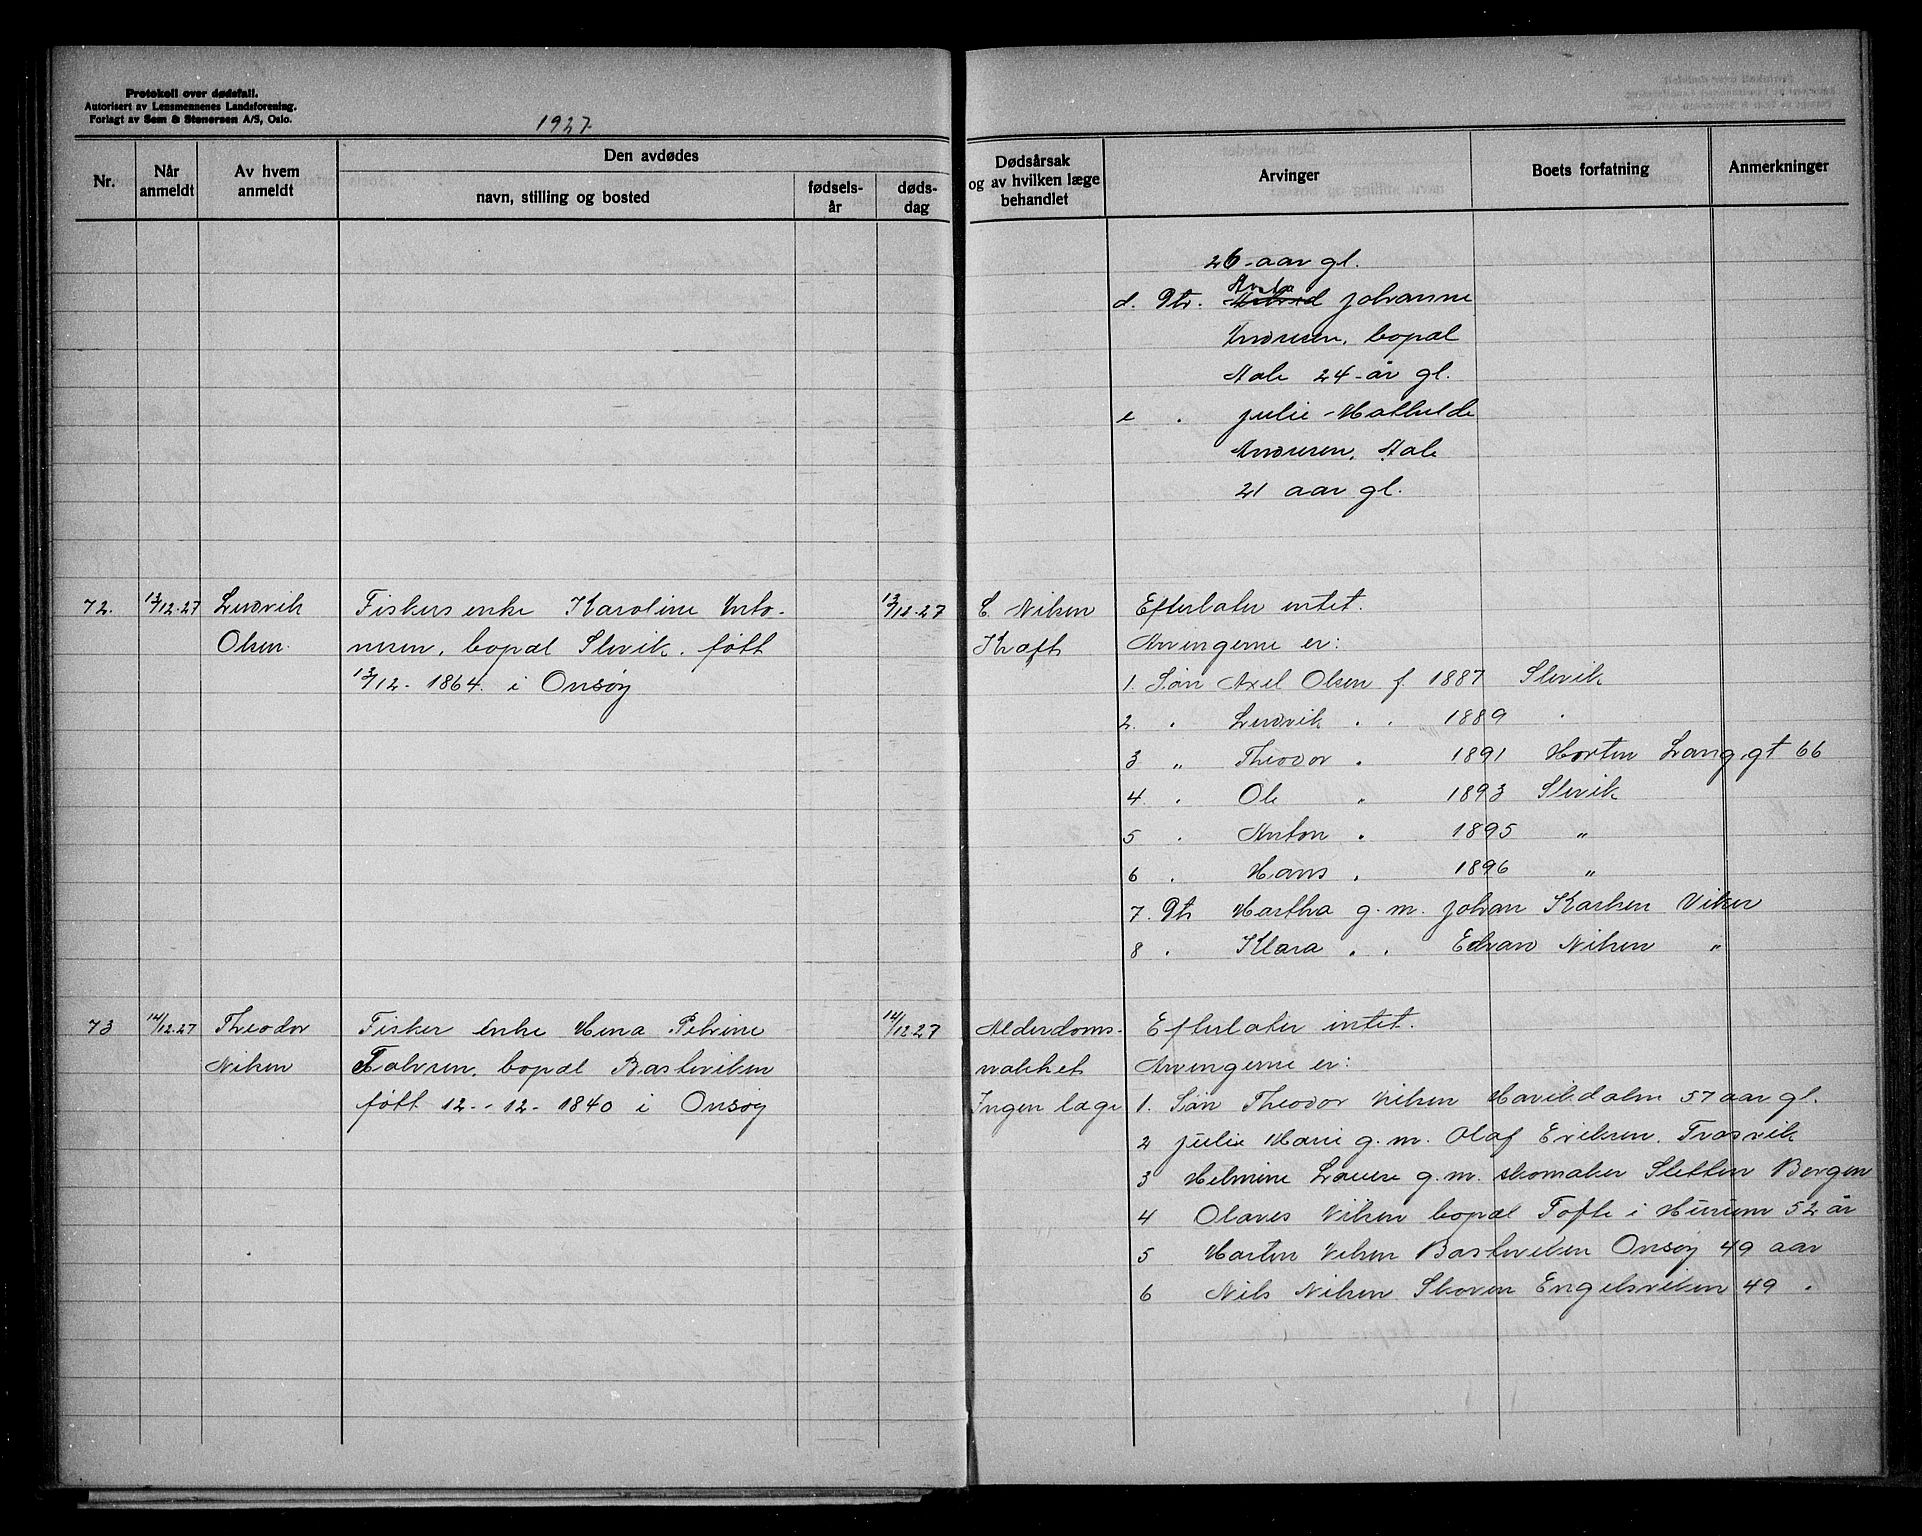 Protokoll over dødsfall.
Autorisert av Lensmennenes Landsforening.
Forlagt av Sem & Stenersen A/S, Oslo.
1927.
Nr.
Når anmeldt
Av hvem anmeldt
Den avdødes
navn, stilling og bosted
fødsels-år
døds-dag
Dødsårsak og av hvilken læge behandlet
Arvinger
Boets forfatning
Anmerkninger
26 aar gl.
d. Dtr. Johanne
Andresen, bopæl
Aale 24-år gl.
e . Julie Mathilde
Andresen, Aale
21 aar gl.
72. 13/12-27 Ludvik Fiskers enke Karoline Anto- 13/12-27 C. Nilsen Efterlater intet.
Olsen. nesen, bopæl Slevik, født Kraft Arvingerne er:
13/12- 1864 i Onsøy 1. Søn Axel Olsen f. 1887 Slevik
2. . Ludvik . . 1889 .
3 „ Theodor . 1891 Horten Langgt 66
4. . Ole „ 1893 Slevik
5 . Anton . 1895 „
6 . Hans . 1896 „
7. Dtr Martha g. m. Johan Karlsen Viker
8 . Klara . . Edvan Nilsen „
73 14/12-27 Theodor Fisker enke Mena Petrine 14/12-27 Alderdoms- Efterlater intet.
Nilsen bopæl Basteviken svakhet Arvingerne er:
født 12-12-1840 i Onsøy Ingen læge 1. Søn Theodor Nilsen 57 aar gl.
2 Julie Marie g. m. Olaf Eriksen. Trosvik
3 Helmine g. m. skomaker Sletten Bergen
4 Olaves Nilsen bopæl Tofte i Hurum 52 år
5 Marten Nilsen Basteviken Onsøy 49 aar
6 Nils Nilsen Skoven Engelsviken 49 .